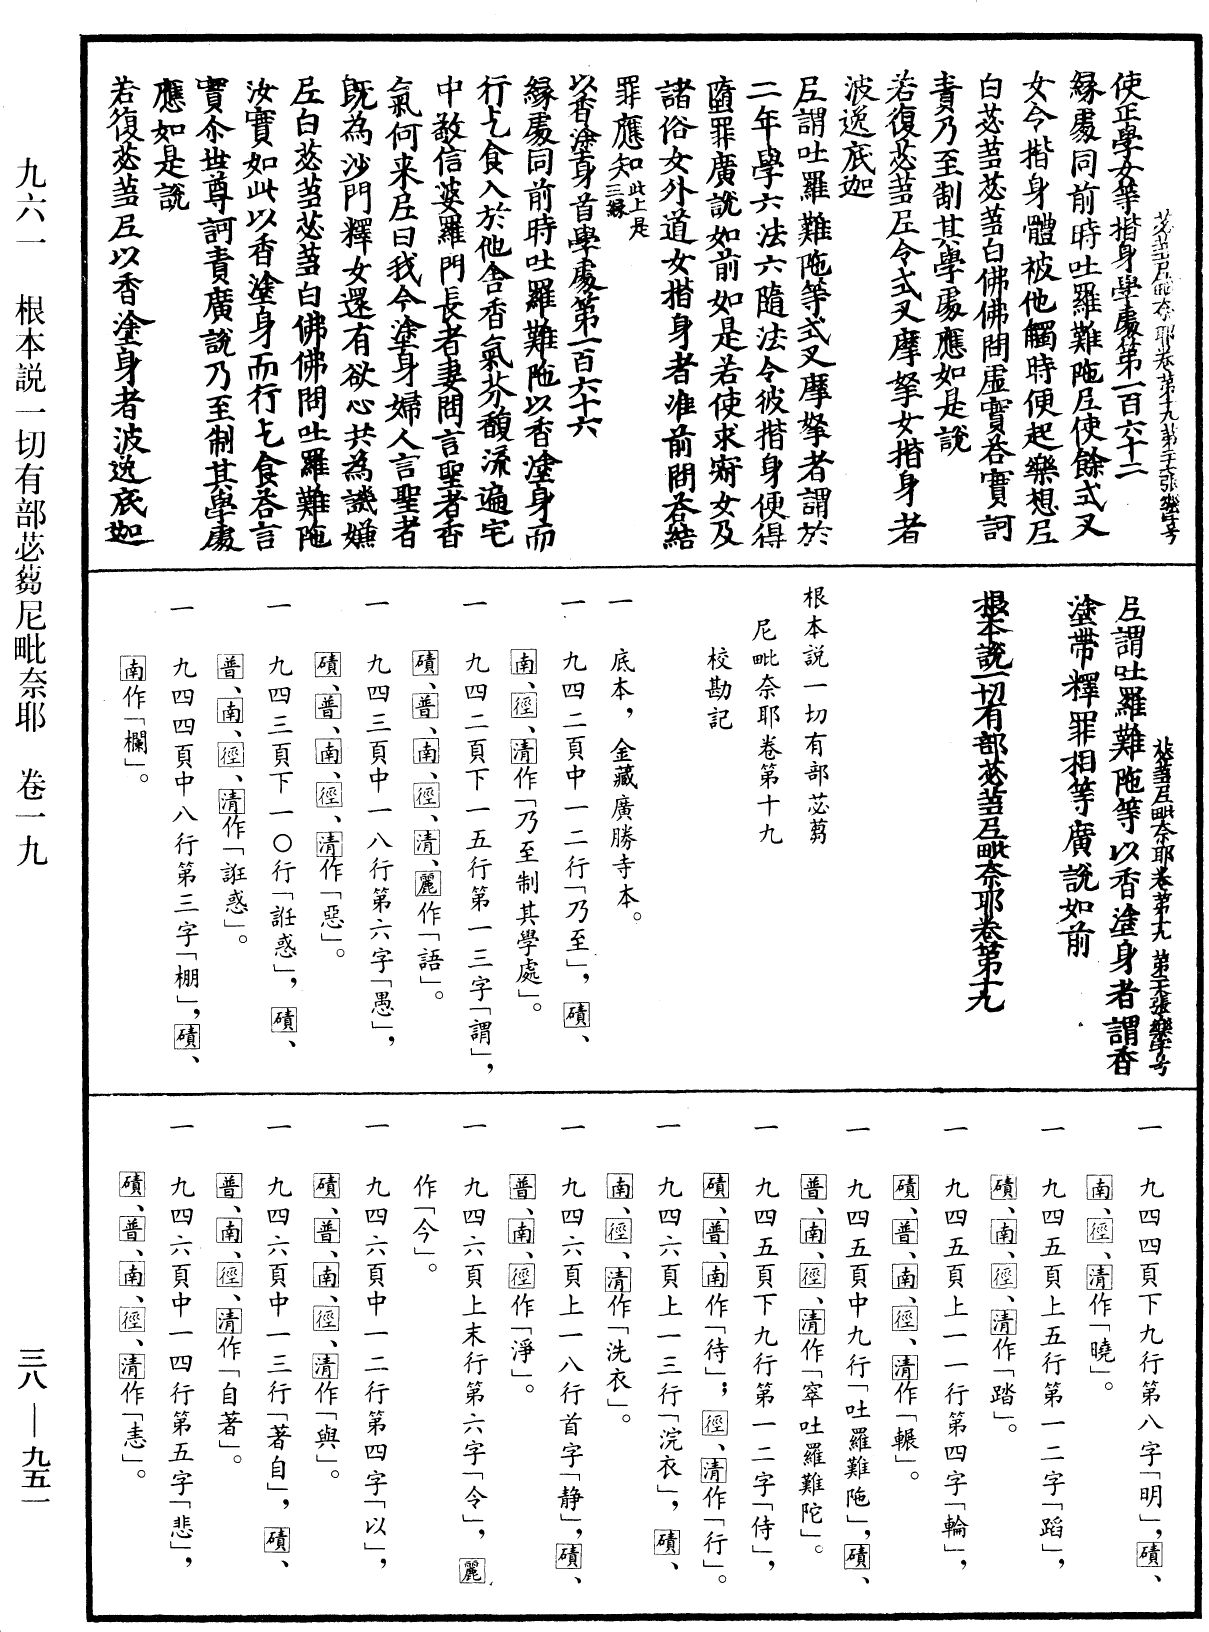 苾蒭尼毗奈耶卷第十九 第二十張 樂字号
使正學女等揩身學處第一百六十二
緣處同前時吐羅難陁尼使餘式叉
女令揩身體被他觸時便起樂想尼
白苾蒭苾蒭白佛佛問虛實荅實訶
責乃至制其學處應如是說
若復苾蒭尼令式叉摩拏女揩身者
波逸底迦
尼謂吐羅難陁等式叉摩拏者謂於
二年學六法六隨法令彼揩身便得
墮罪廣說如前如是若使求寂女及
諸俗女外道女揩身者准前問荅結
罪應知此上是三緣
以香塗身首學處第一百六十六
緣處同前時吐羅難陁以香塗身而
行乞食入於他舍香氣芬馥流遍宅
中敬信婆羅門長者妻問言聖者香
氣何来尼曰我今塗身婦人言聖者
既為沙門釋女還有欲心共為譏嫌
尼白苾蒭苾蒭白佛佛問吐羅難陁
汝實如此以香塗身而行乞食荅言
實尒世尊訶責廣說乃至制其學處
應如是說
若復苾蒭尼以香塗身者波逸底迦
苾蒭尼毗奈耶卷第十九 第 張 樂字号
尼謂吐羅難陁等以香塗身者謂香
塗帶釋罪相等廣說如前
根本說一切有部苾蒭尼毗奈耶卷第十九
根本説一切有部苾蒭
尼毗奈耶卷第十九
校勘記
一 底本，金藏廣勝寺本。
一 九四二頁中一二行「乃至」，磧、
南、徑、清作「乃至制其學處」。
一 九四二頁下一五行第一三字「謂」，
磧、普、南、徑、清、麗作「語」。
一 九四三頁中一八行第六字「愚」，
磧、普、南、徑、清作「惡」。
一 九四三頁下一〇行「誑惑」，磧、
普、南、徑、清作「誑惑」。
一 九四四頁中八行第三字「棚」，磧、
南作「欄」。
一 九四四頁下九行第八字「明」，磧、
南、徑、清作「曉」。
一 九四五頁上五行第一二字「蹈」，
磧、南、徑、清作「踏」。
一 九四五頁上一一行第四字「輪」，
磧、普、南、徑、清作「輾」。
一 九四五頁中九行「吐羅難陁」，磧、
普、南、徑、清作「窣吐羅難陀」。
一 九四五頁下九行第一二字「侍」，
磧、普、南作「待」；徑、清作「行」。
一 九四六頁上一三行「浣衣」，磧、
南、徑、清作「洗衣」。
一 九四六頁上一八行首字「静」，磧、
普、南、徑作「淨」。
一 九四六頁上末行第六字「令」，麗
作「今」。
一 九四六頁中一二行第四字「以」，
磧、普、南、徑、清作「與」。
一 九四六頁中一三行「著自」，磧、
普、南、徑、清作「自著」。
一 九四六頁中一四行第五字「悲」，
磧、普、南、徑、清作「恚」。
九六一 根本説一切有部苾蒭尼毗奈耶 卷一九
三八—九五一